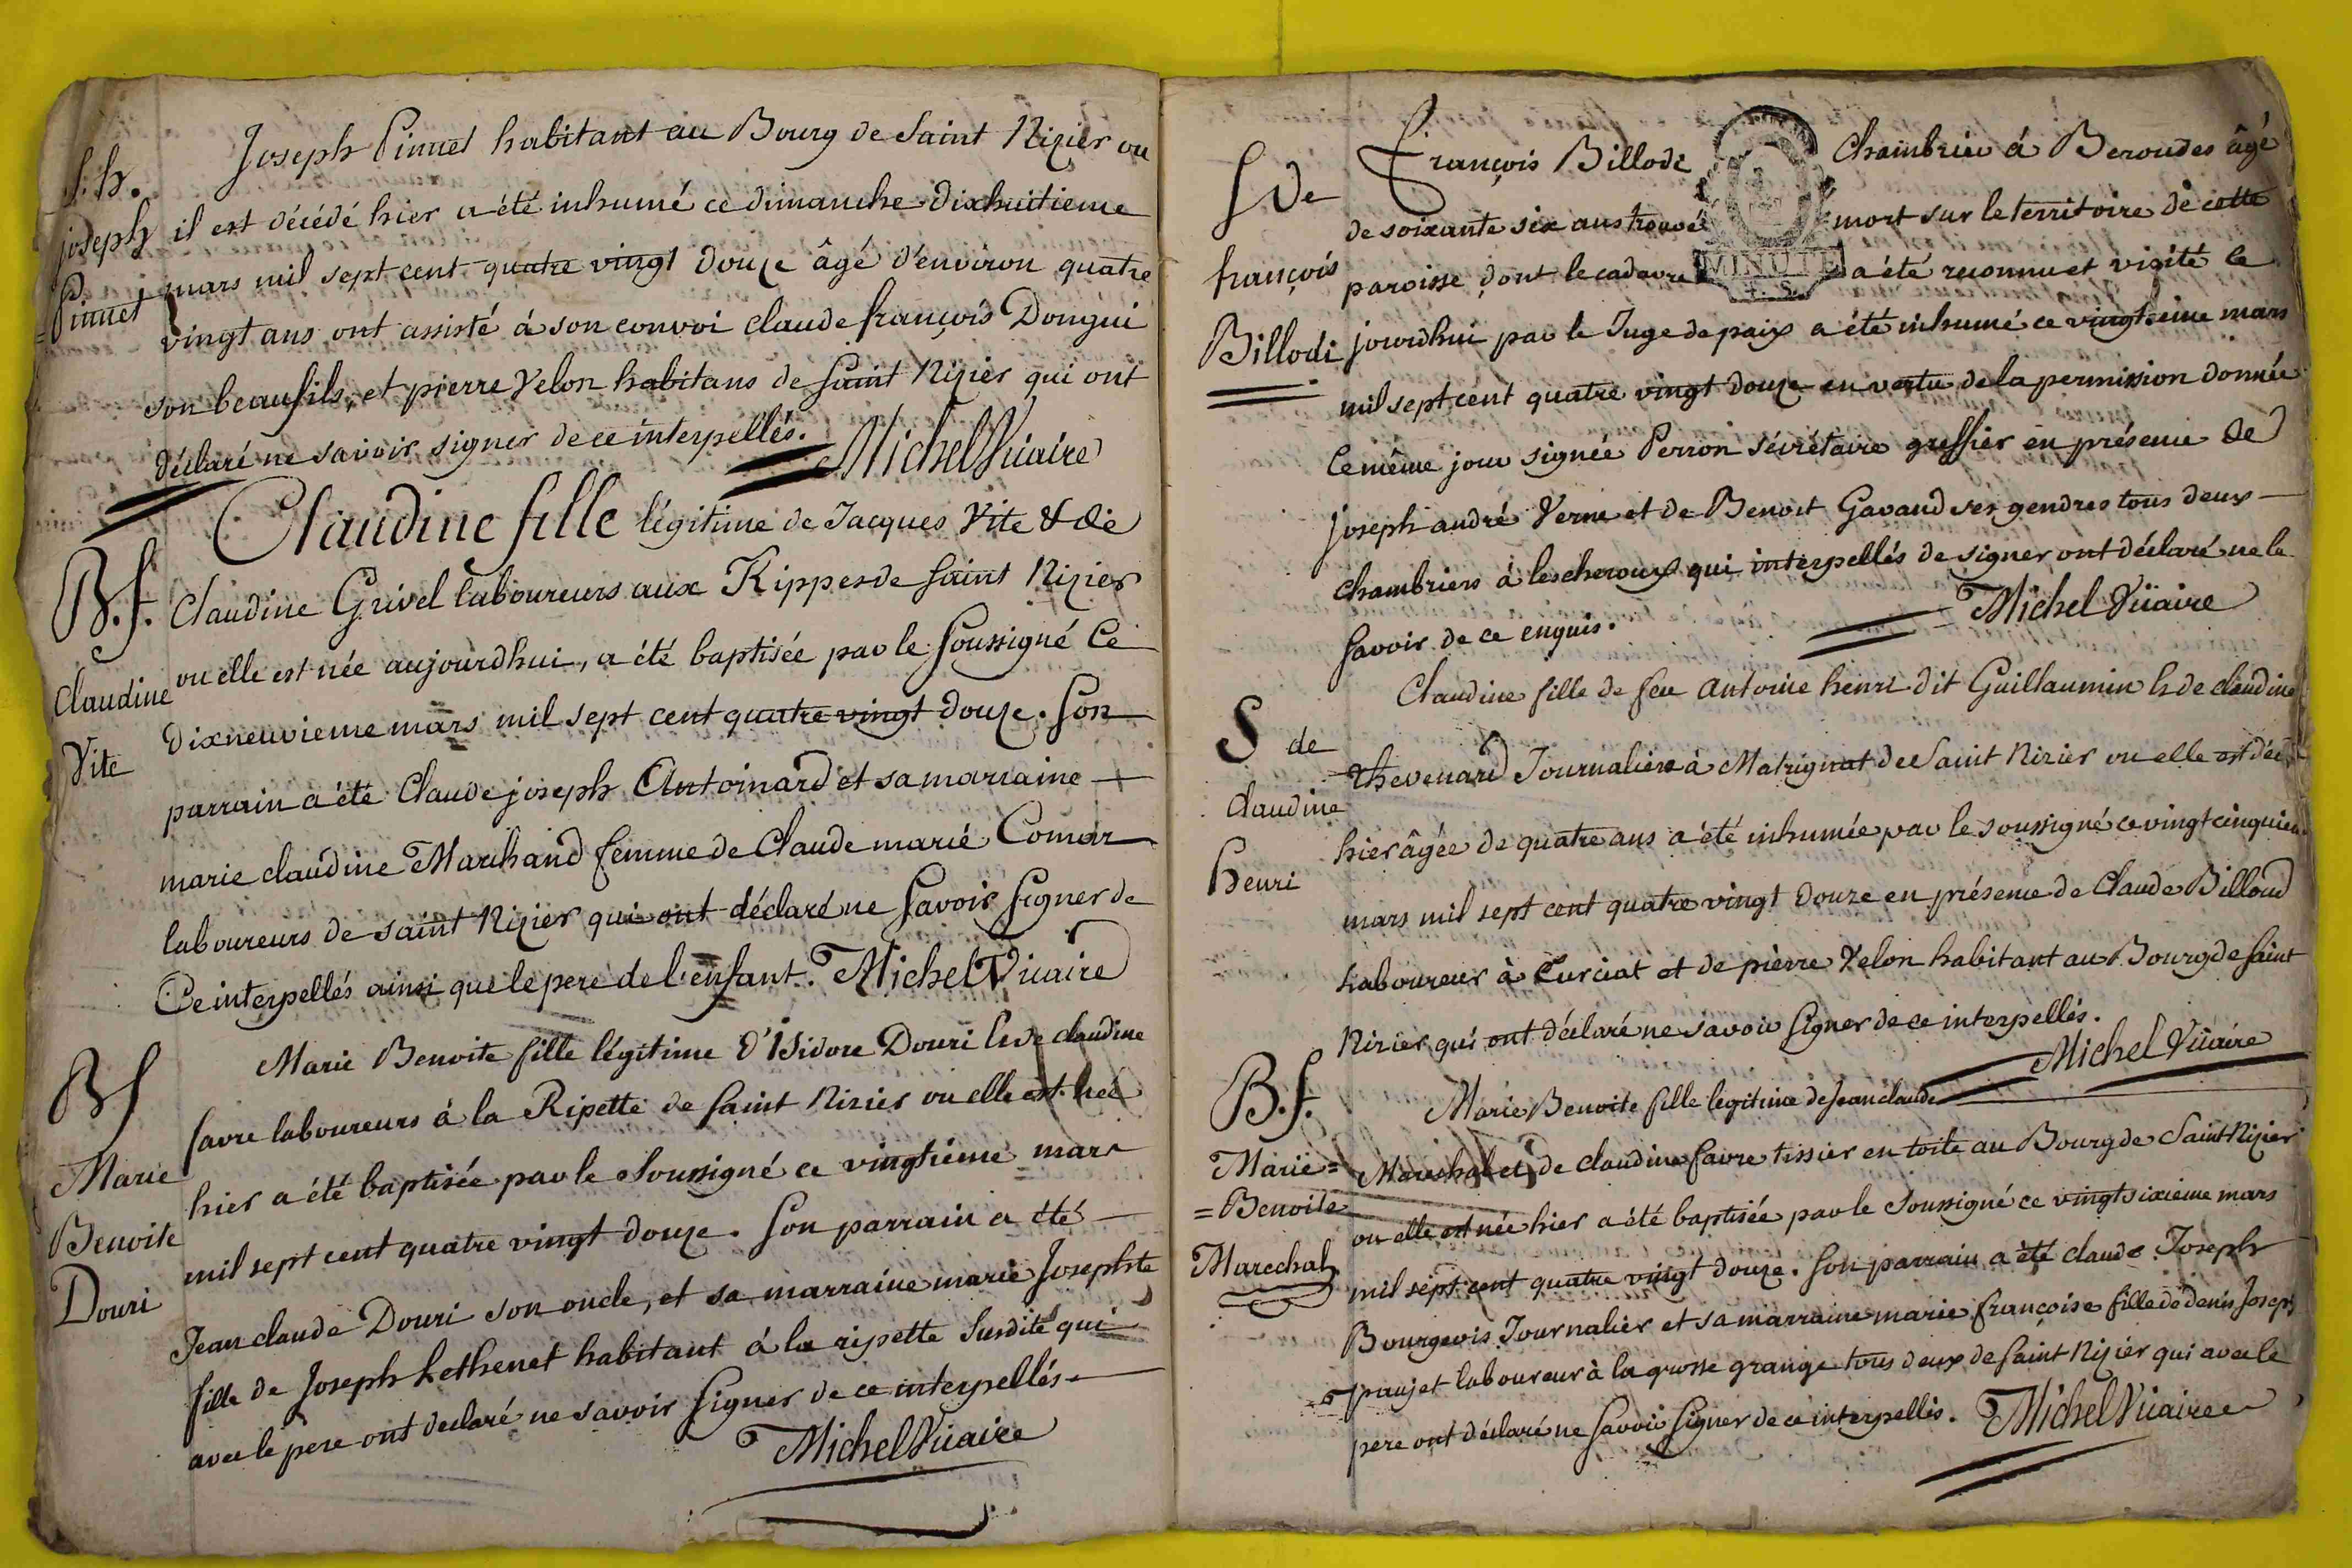 S. h.
joseph
Pinnet
Joseph Pinnet habitant au Bourg de Saint Nizier ou
il est décédé hier a été inhumé ce dimanche dixhuitieme
mars mil sept cent quatre vingt douze âgé d'environ quatre
vingt ans ont assisté à son convoi claude françois Dongui
son beaufils, et pierre Velon habitans de saint Nizier qui ont
déclaré ne savoir signer de ce interpellés. Michel Vicaire
B. f.
Claudine
Vite
Claudine fille légitime de Jacques Vite & de
Claudine Grivel laboureurs aux Rippes de saint Nizier
ou elle est née aujourdhui, a été baptisée par le soussigné ce
dixneuvieme mars mil sept cent quatre vingt douze. son
parrain a été Claude joseph Antoinard et sa marraine
marie claudine Marchand femme de Claude marie Comar
laboureurs de saint Nizier qui ont déclaré ne savoir signer de
Ce interpellés ainsi que le pere de l'enfant. Michel Vicaire
Bf
Marie
Benoite
Douri
Marie Benoite fille légitime d'Isidore Douri & de claudine
favre laboureurs à la Ripette de saint Nizier ou elle est née
hier a été baptisée par le soussigné ce vingtiéme mars
mil sept cent quatre vingt douze. son parrain a été
Jean claude Douri son oncle, et sa marraine marie Josephte
fille de Joseph Lethenet habitant à la ripette susdite qui
avec le pere ont declaré ne savoir signer de ce interpellés.
Michel Vicaire
S de
françois
Billodi
François Billode Chambrier à Beroudes âgé
de soixante six ans trouvé mort sur le territoire de cette
paroisse dont le cadavre a été reconnu et visité ce
MINUTE
jourdhui par le Juge de paix a été inhumé ce vingtieme mars
mil sept cent quatre vingt douze en vertu de la permission donnée
ce même jour signée Perron sécrétaire greffier en présence de
joseph andré Verne et de Benoit Gavand ses gendres tous deux
chambriers à lescheroux qui interpellés de signer ont déclaré ne le
savoir de ce enquis. Michel Vicaire
S de
Claudine
henri
Claudine fille de feu Antoine henri dit Guillaumin & de claudine
thevenard Journaliere à Matrignat de Saint Nizier ou elle est
hier âgée de quatre ans a été inhumée par le soussigné ce vingt cinquiem
mars mil sept cent quatre vingt douze en présence de Claude Billoud
Laboureur à Curciat et de pierre Velon habitant au Bourg de saint
Nizier qui ont déclaré ne savoir signer de ce interpellés.
Michel Vicaire
B. f.
Marie =
= Benoite
Marechal
Marie Benoite fille legitime de Jean claude
Marechal et de claudine favre tissier en toile au Bourg de Saint Nizier
ou elle est née hier a été baptisée par le soussigné ce vingtsixieme mars
mil sept cent quatre vingt douze. son parrain a été claude Joseph
Bourgeois Journalier et sa marraine marie françoise fille de denis Joseph
paujet laboureur à la grosse grange tous deux de saint Nizier qui avec le
pere ont déclaré ne savoir signer de ce interpellés. Michel Vicaire